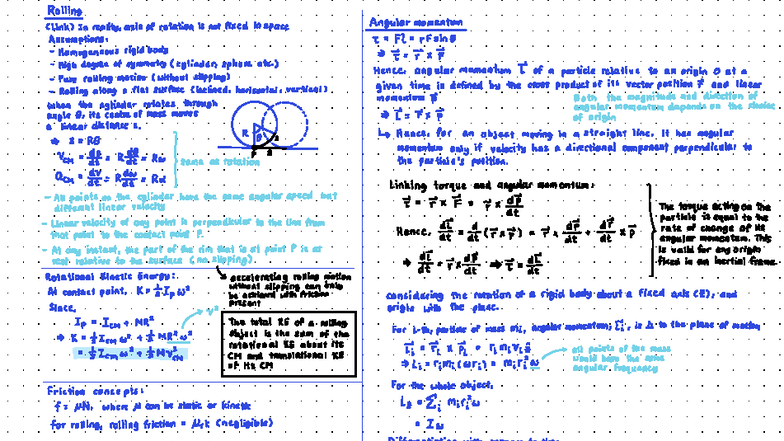 Rolling
(Link) In reality, axis of rotation is not fixed in space
Assumptions:
- Homogeneous rigid body
- High degree of symmetry (cylinder, sphere etc.)
- Pure rolling motion (without slipping)
- Rolling along a flat surface (inclined, horizontal, vertical)
When the cylinder rotates through
angle θ, its centre of mass moves
a linear distance s.
⇒ s = Rθ
V_CM = ds/dt = R dθ/dt = Rω
a_CM = dv/dt = R dω/dt = Rα
same as rotation
R
θ
s
P
- All points on the cylinder have the same angular speed but
different linear velocity
- Linear velocity of any point is perpendicular to the line from
that point to the contact point P.
- At any instant, the part of the rim that is at point P is at
rest relative to the surface (no slipping)
Rotational Kinetic Energy:
accelerating rolling motion
without slipping can only
be achieved with friction
present
At contact point, K = ½ I_P ω².
Since,
I_P = I_CM + MR²
⇒ K = ½ I_CM ω² + ½ MR²ω²
= ½ I_CM ω² + ½ MV²_CM
v²
The total KE of a rolling
object is the sum of the
rotational KE about its
CM and translational KE
of its CM
Friction concepts:
f = μN, where μ can be static or kinetic
For rolling, rolling friction = μ_r (negligible)
Angular momentum
τ = Fl = rF sinθ
⇒ τ⃗ = r⃗ × F⃗
Hence, angular momentum L⃗ of a particle relative to an origin O at a
given time is defined by the cross product of its vector position r⃗ and linear
momentum p⃗
⇒ L⃗ = r⃗ × p⃗
Both the magnitude and direction of
angular momentum depends on the choice
of origin
↳ Hence, for an object moving in a straight line, it has angular
momentum only if velocity has a directional component perpendicular to
the particle's position.
Linking torque and angular momentum:
τ⃗ = r⃗ × F⃗ = r⃗ × dp⃗/dt
Hence, dL⃗/dt = d/dt (r⃗ × p⃗) = r⃗ × dp⃗/dt + dr⃗/dt × p⃗
⇒ dL⃗/dt = r⃗ × dp⃗/dt ⇒ τ⃗ = dL⃗/dt
The torque acting on the
particle is equal to the
rate of change of its
angular momentum. This
is valid for any origin
fixed in an inertial frame.
Considering the rotation of a rigid body about a fixed axis (z), and
origin with the plane.
For i-th particle of mass mi, angular momentum, L⃗i, is ⊥ to the plane of motion
L⃗i = r⃗i × p⃗i = ri mi vi
⇒ Li = ri mi (ωri) = mi ri² ω
all points of the mass
would have the same
angular frequency
For the whole object,
L = Σi mi ri² ω
= Iω